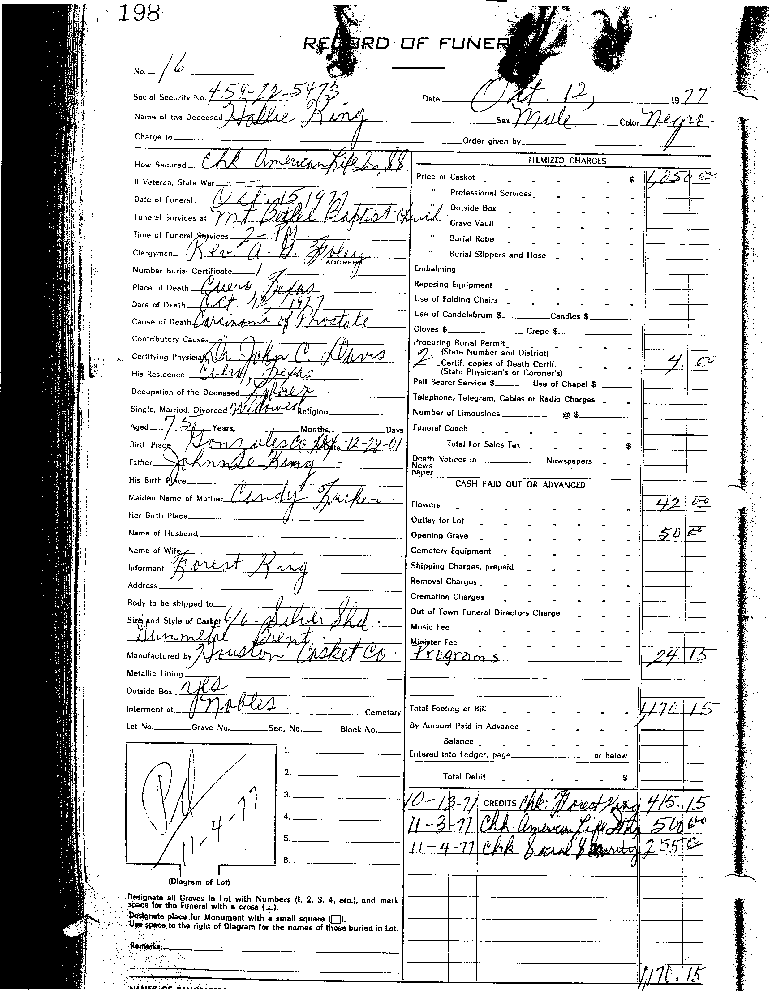 198
RECORD OF FUNER
No. 16
Social Security No. 454-22-5473
Date Oct. 12, 1977
Name of the Deceased Hollie King Sex Male Color Negro
Charge to Order given by
How Secured Chk American Life Ins
If Veteran, State War
Date of Funeral Oct 15, 1977
Funeral Services at Mt. Bethel Baptist Church
Time of Funeral Services 2- PM
Clergyman Rev. A. G.
ADDRESS
Number Burial Certificate
Place of Death Cuero, Texas
Date of Death Oct 12, 1977
Cause of Death Carcinoma of Prostate
Contributory Causes
Certifying Physician Dr John C. Davis
His Residence Cuero, Texas
Occupation of the Deceased Laborer
Single, Married, Divorced Widower Religion
Aged 75 Years, Months, Days
Birth Place Gonzales Co. 12-22-01
Father Johnson King
His Birth Place
Maiden Name of Mother Cindy
Her Birth Place
Name of Husband
Name of Wife
Informant Forest King
Address
Body to be shipped to
Size and Style of Casket 6/6 Silver Shd.
Manufactured by Houston Casket Co.
Metallic Lining
Outside Box yes
Interment at Nobles Cemetery
Lot No. Grave No. Sec. No. Block No.
Pd
11-4-77
1.
2.
3.
4.
5.
6.
(Diagram of Lot)
Designate all Graves in Lot with Numbers (1, 2, 3, 4, etc.), and mark
space for the Funeral with a cross
Designate place for Monument with a small square
Use space to the right of Diagram for the names of those buried in Lot.
Remarks:
ITEMIZED CHARGES
Price of Casket $ 1,050 00
" Professional Services
" Outside Box
" Grave Vault
" Burial Robe
" Burial Slippers and Hose
Embalming
Reposing Equipment
Use of Folding Chairs
Use of Candelabrum $ Candles $
Gloves $ Crepe $
Procuring Burial Permit
(State Number and District)
2 Certif. copies of Death Certif. 4 00
(State Physician's or Coroner's)
Pall Bearer Service $ Use of Chapel $
Telephone, Telegram, Cables or Radio Charges
Number of Limousines @ $
Funeral Coach
Total for Sales Tax $
Death Notices in Newspapers
News
paper
CASH PAID OUT OR ADVANCED
Flowers 42 00
Outlay for Lot
Opening Grave 50 00
Cemetery Equipment
Shipping Charges, prepaid
Removal Charges
Cremation Charges
Out of Town Funeral Directors Charge
Music Fee
Minister Fee
Programs 24 15
Total Footing of Bill 1,170 15
By Amount Paid in Advance
Balance
Entered into Ledger, page or below
Total Debit $
10-13-77 CREDITS Chk: Forest King 415.15
11-3-77 Chk American Life Ins 500 00
11-4-77 Chk Social Security 255 00
1,170.15